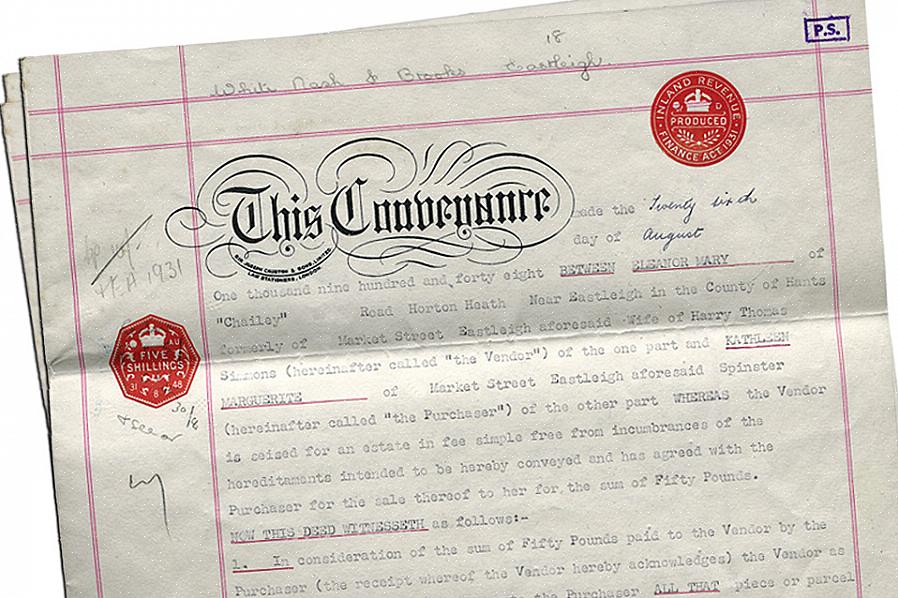 P.S.
18
White Nash & Brooks Eastleigh.
INLAND REVENUE
PRODUCED
FINANCE ACT 1931
This Conveyance
SIR JOSEPH CAUSTON & SONS, LIMITED
LAW STATIONERS, LONDON.
made the Twenty sixth
day of August
One thousand nine hundred and forty eight BETWEEN ELEANOR MARY of
"Chailey" Road Horton Heath Near Eastleigh in the County of Hants
formerly of Market Street Eastleigh aforesaid Wife of Harry Thomas
Simmons (hereinafter called "the Vendor") of the one part and KATHLEEN
MARGUERITE of Market Street Eastleigh aforesaid Spinster
(hereinafter called "the Purchaser") of the other part WHEREAS the Vendor
is seised for an estate in fee simple free from incumbrances of the
hereditaments intended to be hereby conveyed and has agreed with the
Purchaser for the sale thereof to her for the sum of Fifty Pounds.
NOW THIS DEED WITNESSETH as follows:-
1. In consideration of the sum of Fifty Pounds paid to the Vendor by the
Purchaser (the receipt whereof the Vendor hereby acknowledges) the Vendor as
the Purchaser ALL THAT piece or parcel
1931
AU
FIVE
SHILLINGS
31 8 48
30/8